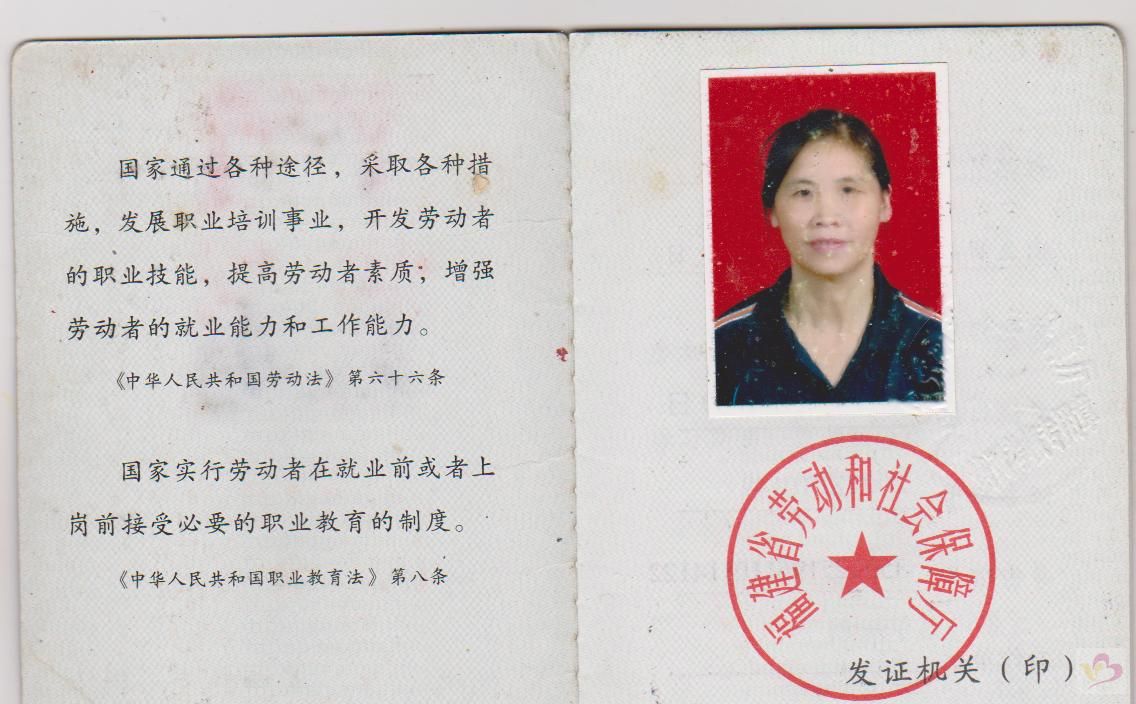 国家通过各种途径，采取各种措
施，发展职业培训事业，开发劳动者
的职业技能，提高劳动者素质；增强
劳动者的就业能力和工作能力。
《中华人民共和国劳动法》第六十六条
国家实行劳动者在就业前或者上
岗前接受必要的职业教育的制度。
《中华人民共和国职业教育法》第八条
福建省劳动和社会保障厅
发证机关（印）